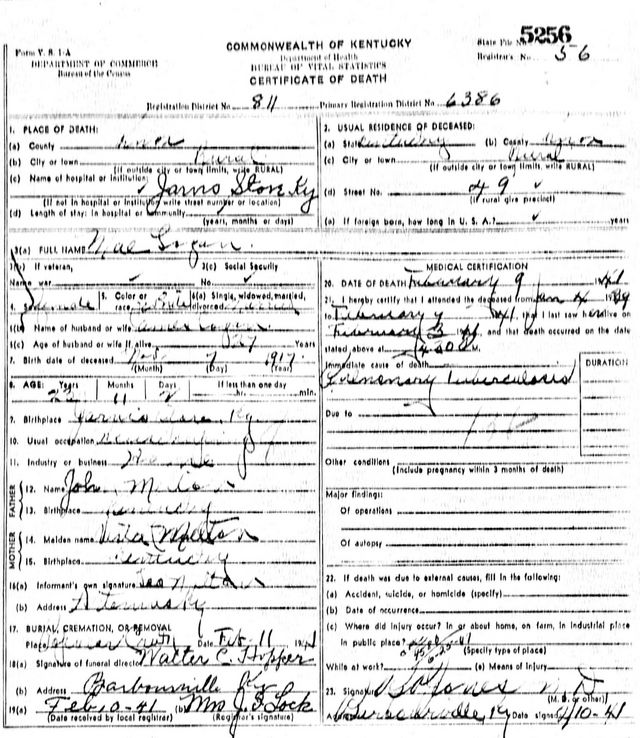 Form V. S. 1-A
DEPARTMENT OF COMMERCE
Bureau of the Census
COMMONWEALTH OF KENTUCKY
Department of Health
BUREAU OF VITAL STATISTICS
CERTIFICATE OF DEATH
State File No. 5256
Registrar's No. 56
Registration District No. 811 Primary Registration District No. 6386
1. PLACE OF DEATH:
(a) County Knox
(b) City or town Rural
(If outside city or town limits, write RURAL)
(c) Name of hospital or institution: Jarvis Store Ky
(If not in hospital or institution write street number or location)
(d) Length of stay: In hospital or community
(years, months or days)
2. USUAL RESIDENCE OF DECEASED:
(a) State Kentucky (b) County Knox
(c) City or town Rural
(If outside city or town limits, write RURAL)
(d) Street No. 49
(If rural give precinct)
(e) If foreign born, how long in U. S. A.?
3(a) FULL NAME Mae Logan
3(b) If veteran, 3(c) Social Security
Name war No.
4. Sex Female 5. Color or race White 6(a) Single, widowed, married, divorced
6(b) Name of husband or wife
6(c) Age of husband or wife if alive 27 Years
7. Birth date of deceased 7 1917
(Month) (Day) (Year)
8. AGE: Years Months Days If less than one day
11 2 hr. min.
9. Birthplace Jarvis Store, Ky
10. Usual occupation
11. Industry or business
FATHER
12. Name John
13. Birthplace Kentucky
MOTHER
14. Maiden name
15. Birthplace Kentucky
16(a) Informant's own signature
(b) Address Artemus Ky
17. BURIAL, CREMATION, OR REMOVAL
Place Date Feb 11 1941
18(a) Signature of funeral director Walter C. Hopper
(b) Address Barbourville Ky
19(a) Feb 10-41 (b) Mrs J. F. Lock
(Date received by local registrar) (Registrar's signature)
MEDICAL CERTIFICATION
20. DATE OF DEATH February 9 1941
21. I hereby certify that I attended the deceased from Jan 4
to February 9 41, that I last saw her alive on
February 3 41, and that death occurred on the date
stated above at M.
Immediate cause of death DURATION
Pulmonary Tuberculosis
Due to
Other conditions
(Include pregnancy within 3 months of death)
Major findings:
Of operations
Of autopsy
22. If death was due to external causes, fill in the following:
(a) Accident, suicide, or homicide (specify)
(b) Date of occurrence
(c) Where did injury occur? In or about home, on farm, in industrial place
in public place?
(Specify type of place)
While at work? (e) Means of injury
23. Signature
(M. D. or other)
Address Barbourville, Ky Date signed 2/10-41